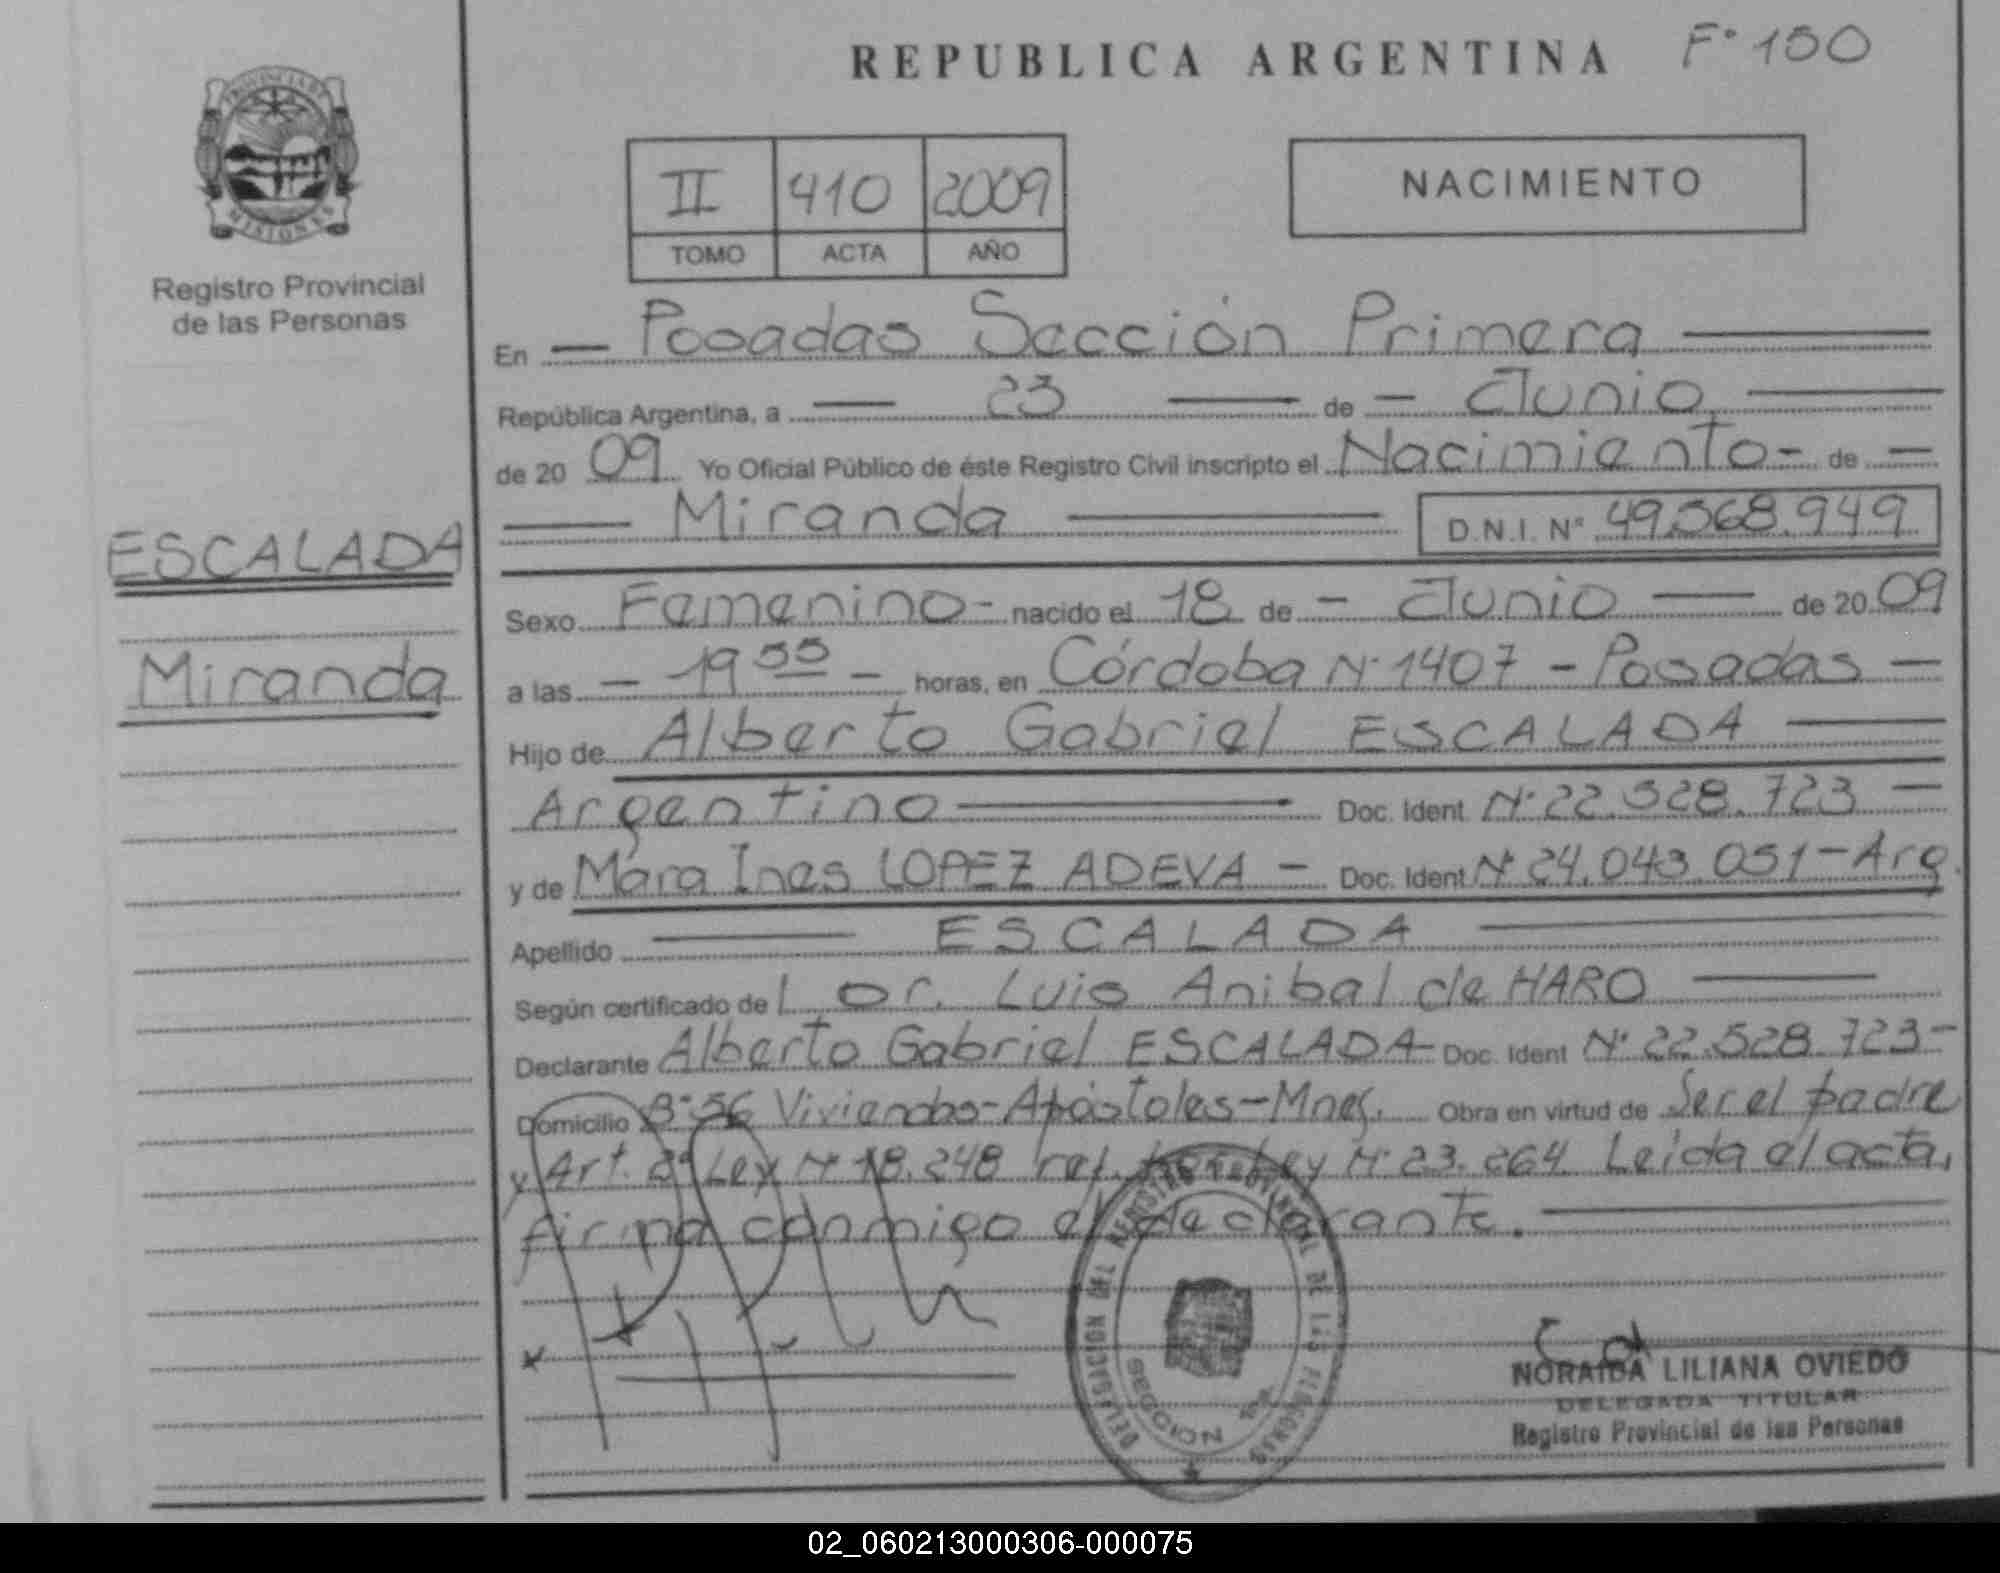 REPUBLICA ARGENTINA F° 150
PROVINCIA DE MISIONES
Registro Provincial
de las Personas
II 410 2009
TOMO ACTA AÑO
NACIMIENTO
En — Posadas Sección Primera —
República Argentina, a — 23 — de — Junio —
de 20 09 Yo Oficial Público de éste Registro Civil inscripto el Nacimiento - de —
— Miranda — D.N.I. N° 49.568.949
ESCALADA
Miranda
Sexo Femenino - nacido el 18 de — Junio — de 20 09
a las — 19 55 — horas, en Córdoba N° 1407 - Posadas —
Hijo de Alberto Gabriel ESCALADA —
Argentino — Doc. Ident. N° 22.528.723 —
y de Mara Ines LOPEZ ADEVA — Doc. Ident. N° 24.043.051 - Arg.
Apellido — ESCALADA —
Según certificado de l Dr. Luis Anibal de HARO —
Declarante Alberto Gabriel ESCALADA - Doc. Ident N° 22.528.723 -
Domicilio B° 56 Viviendas - Apóstoles - Mnes. Obra en virtud de Ser el padre
y Art. 2° Ley N° 18.248 ref. por Ley N° 23.264 Leida el acta,
firma conmigo el declarante. —
DELEGACION DEL REGISTRO PROVINCIAL DE LAS PERSONAS
SECCION 1ra.
NORAIDA LILIANA OVIEDO
DELEGADA TITULAR
Registro Provincial de las Personas
02_060213000306-000075